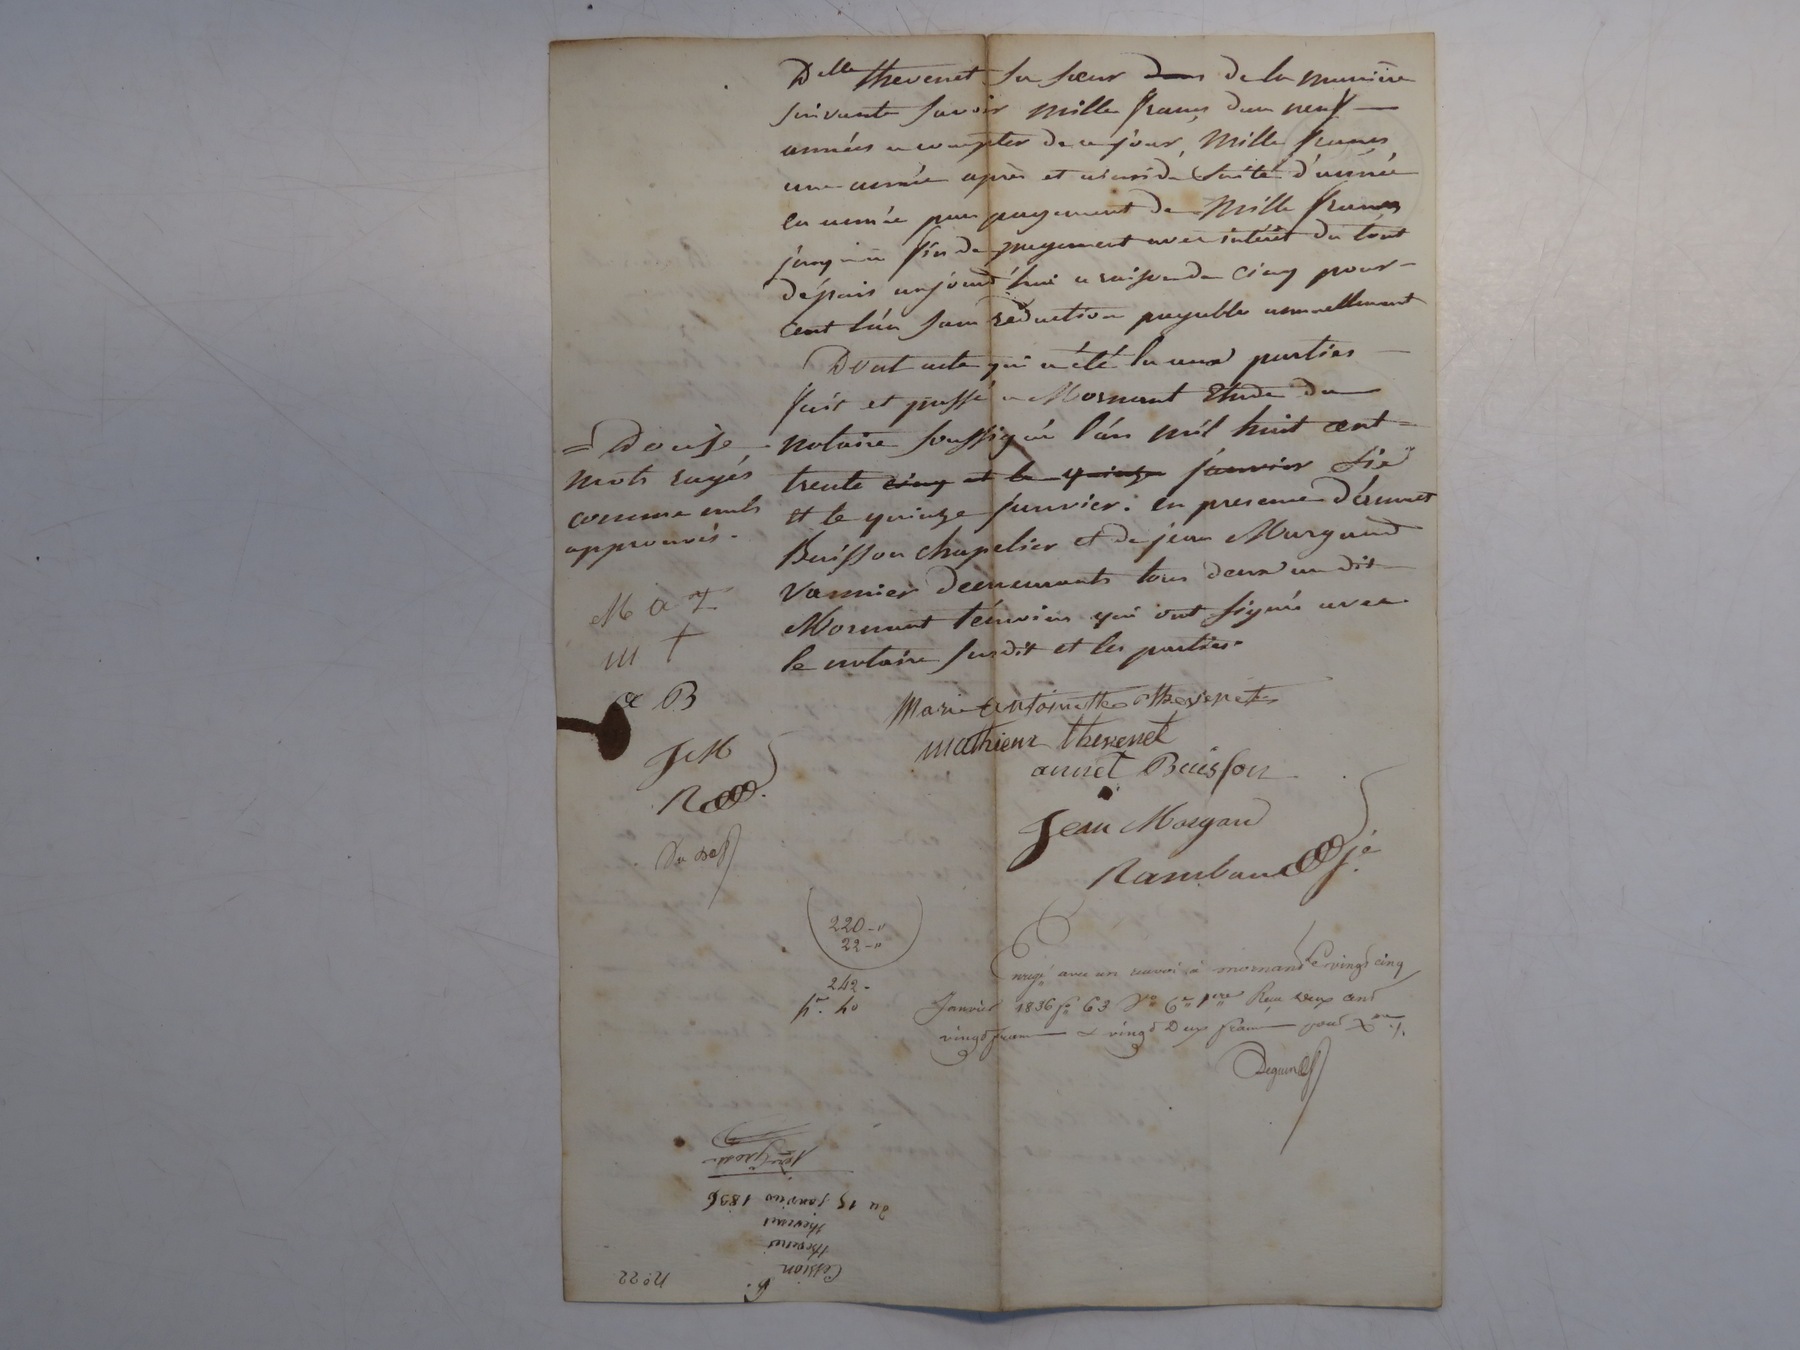 Delle thevenet sa sœur dans de la manière
suivante savoir mille francs dans neuf
années a compter de ce jour, Mille francs
une année après et ainsi de suite d'année
en année par payement de Mille francs
jusqu'a fin de payement avec intérêt du tout
depuis aujourd'hui a raison de cinq pour
cent l'an sans réduction payable annuellement
Dont acte qui a été lu aux parties
fait et passé a Mornant Etude du
notaire soussigné l'an mil huit cent
trente cinq et le quinze janvier six
et le quinze janvier. en presence d'annet
Buisson chapelier et de jean Morgand
vannier demeurants tous deux au dit
Mornant témoins qui ont signés avec
le notaire susdit et les parties.
= Douze
mots rayés
comme nuls
approuvés.
M a T
m t
a B
J M
R
Marie antoinette thevenet
mathieu thevenet
annet Buisson
Jean Morgand
Rambaud
220 - "
22 - "
242 -
Enregé avec un renvoi à mornant le vingt cinq
Janvier 1836 fo 63 Vo Reçu deux cent
vingt francs & vingt deux francs pour
Cession
thevenet
thevenet
du 15 janvier 1836
no. 22